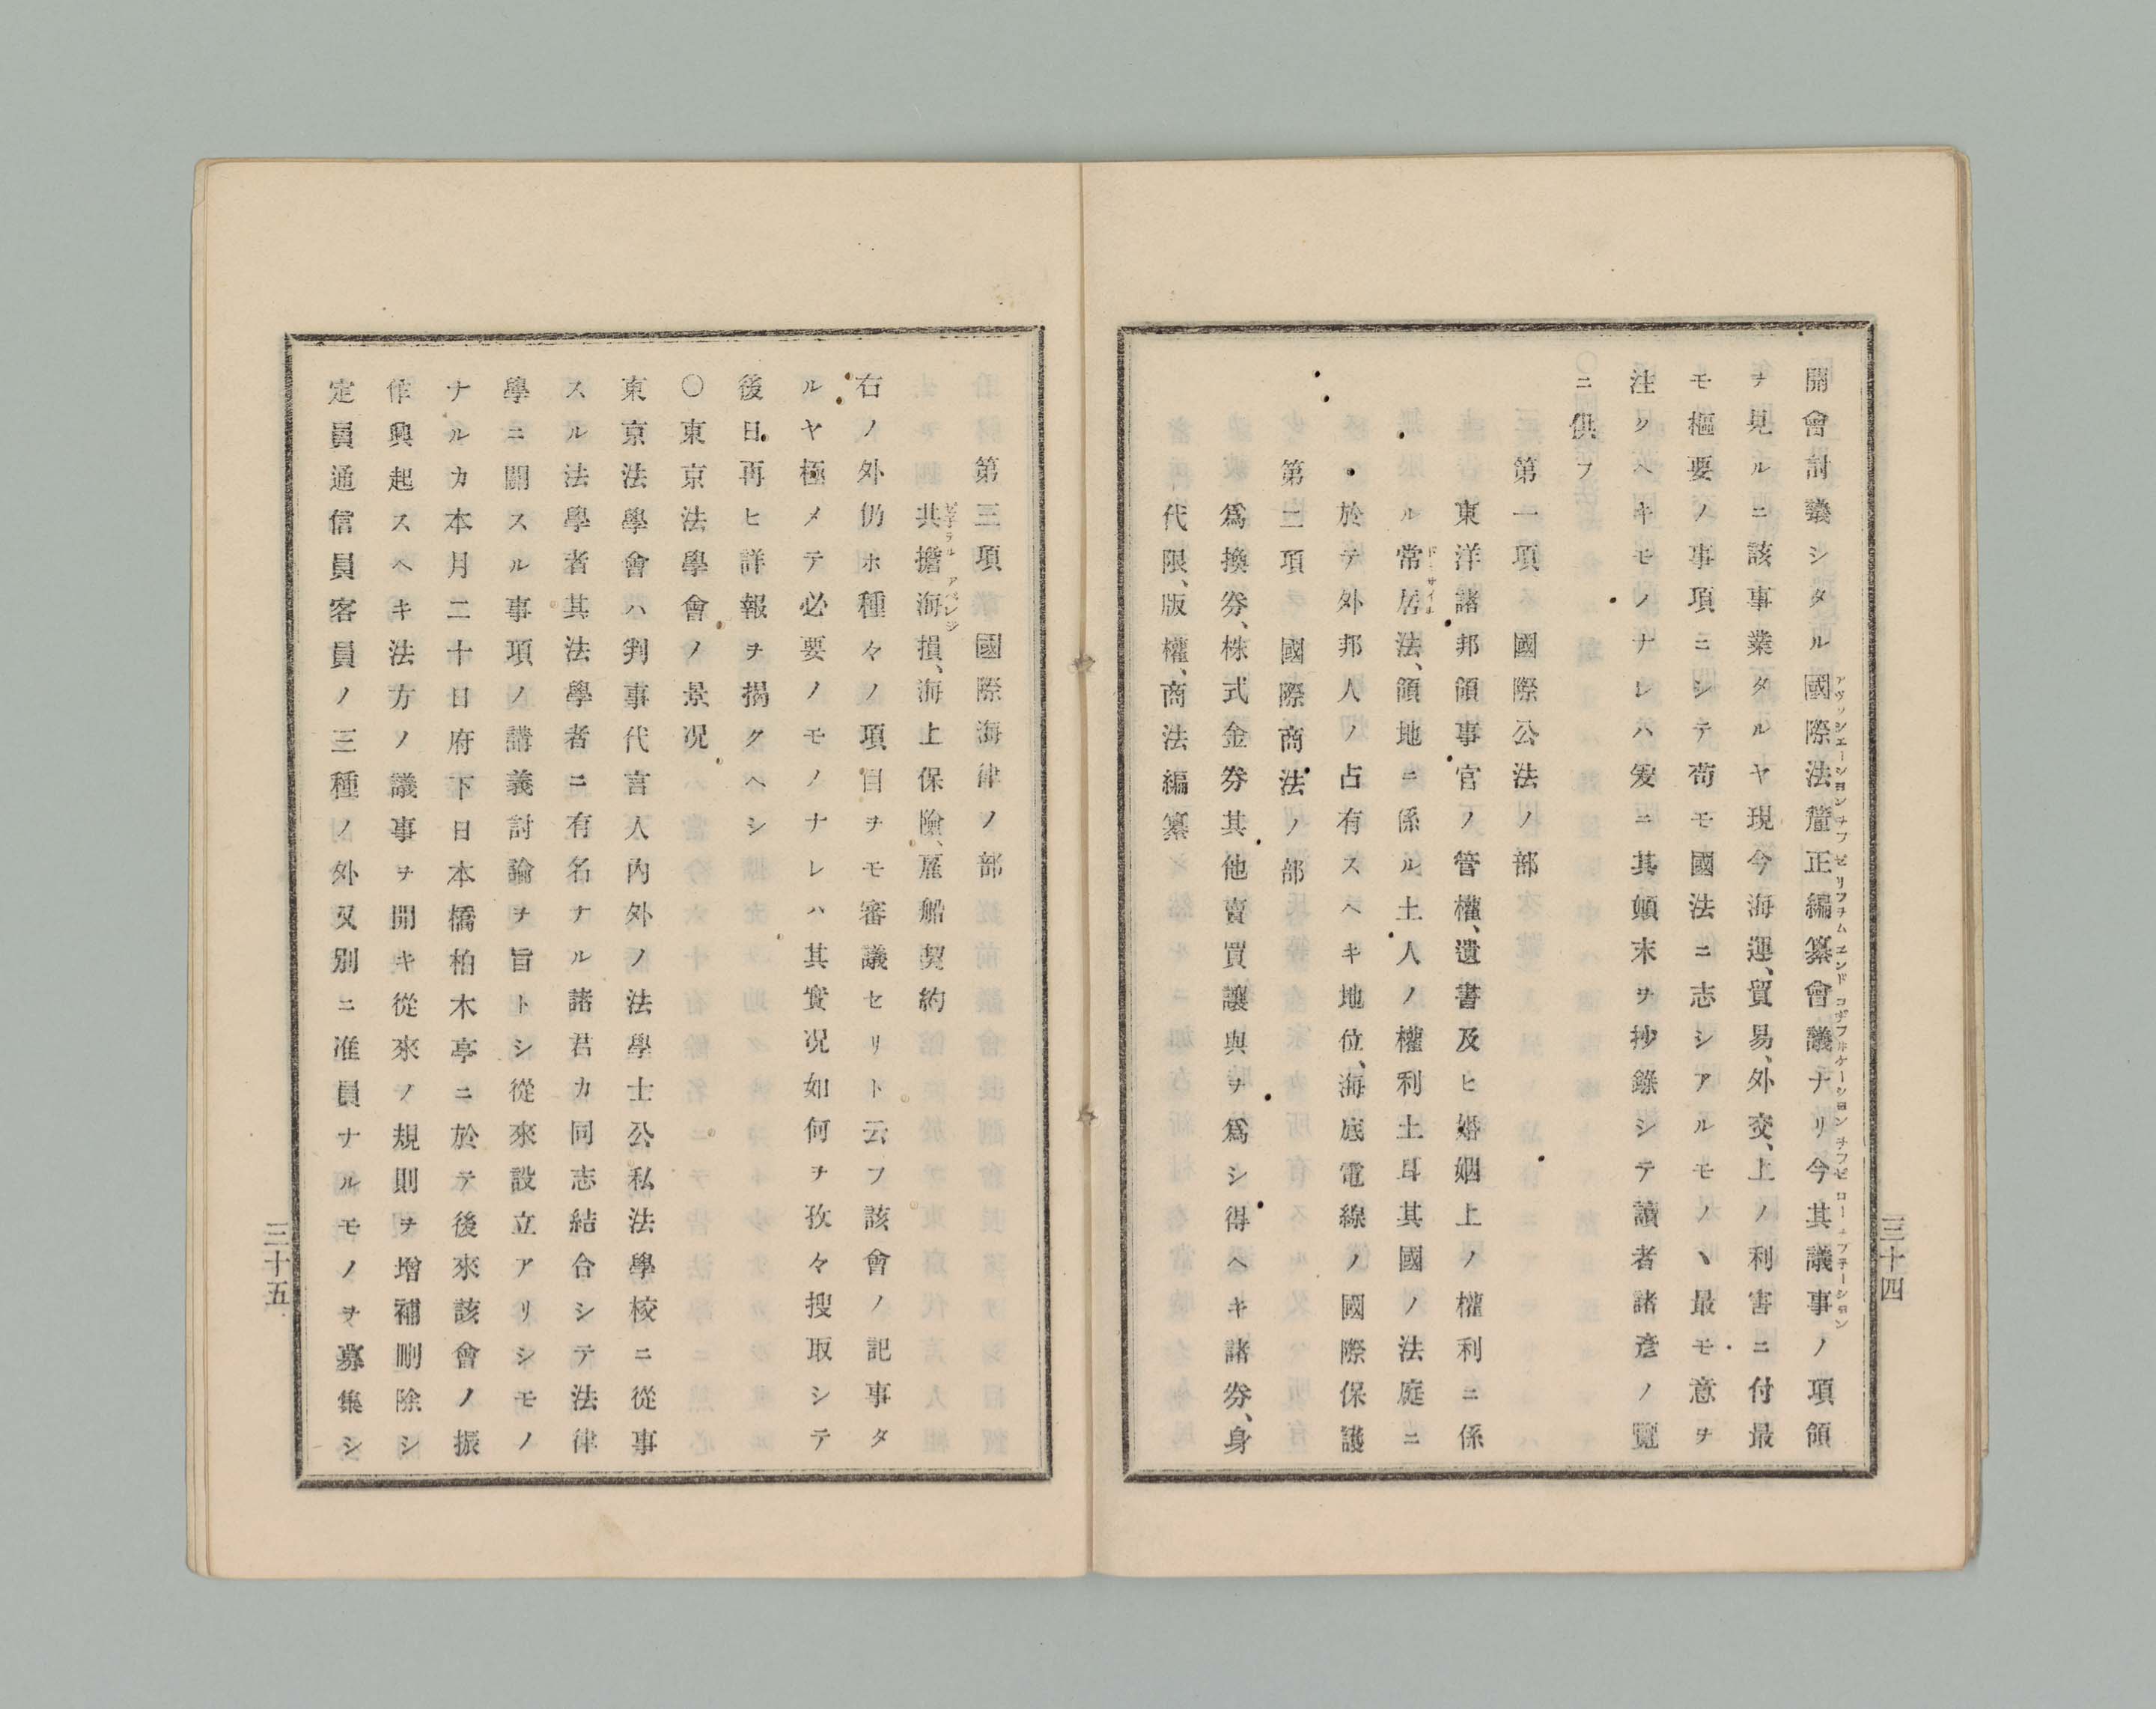 三十四
開會討議シタル國際法釐正編纂會議ナリ今其議事ノ項領
ヲ見ルニ該事業タルヤ現今海運、貿易、外交、上ノ利害ニ付最
モ樞要ノ事項ニシテ苟モ國法ニ志シアルモノヽ最モ意ヲ
注クヘキモノナレハ爰ニ其顛末ヲ抄錄シテ讀者諸彥ノ覽
ニ供フ
第一項 國際公法ノ部
東洋諸邦領事官ノ管權、遺書及ヒ婚姻上ノ權利ニ係
ル常居法、領地ニ係ル土人ノ權利土耳其國ノ法庭ニ
於テ外邦人ノ占有スヘキ地位、海底電線ノ國際保護
第二項 國際商法ノ部
爲換券、株式金券其他賣買讓與ヲ爲シ得ヘキ諸券、身
代限、版權、商法編纂
第三項 國際海律ノ部
共擔海損、海上保險、雇船契約
右ノ外仍ホ種々ノ項目ヲモ審議セリト云フ該會ノ記事タ
ルヤ極メテ必要ノモノナレハ其實況如何ヲ孜々搜取シテ
後日再ヒ詳報ヲ揭クヘシ
〇東京法學會ノ景况
東京法學會ハ判事代言人內外ノ法學士公私法學校ニ從事
スル法學者其法學者ニ有名ナル諸君カ同志結合シテ法律
學ニ關スル事項ノ講義討論ヲ旨トシ從來設立アリシモノ
ナルカ本月二十日府下日本橋柏木亭ニ於テ後來該會ノ振
作興起スヘキ法方ノ議事ヲ開キ從來ノ規則ヲ增補刪除シ
定員通信員客員ノ三種ノ外又別ニ准員ナルモノヲ募集シ
三十五